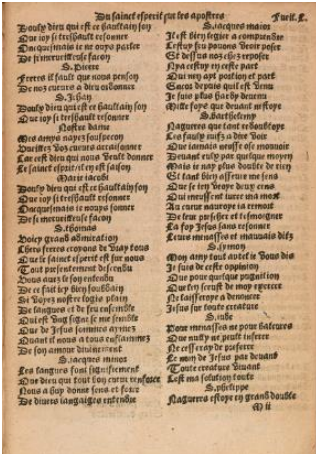 Du sainct esperit sur les apostres Fueil. L.
Douly dieu qui est ce haultain son
Que ioy si treshault resonner
Oncquesmais ie ne ouys parler
De si merueilleuse facon
S. Pierre
Freres il fault que nous penson
De noz cueurs a dieu ordonner
S. Jehan
Douly dieu qui est ce haultain son
Que ioy si treshault resonner
Nostre dame
Mes amys nayez souspecon
Vueillez voz cueurs arraisonner
Car cest dieu qui nous veult donner
Le sainct esperit/il en est saison
Marie iacobi
Douly dieu qui est ce haultain son
Que ioy si treshault resonner
Oncquesmais ie nouys sonner
De si merueilleuse facon
S. thomas
Voicy grand admiration
Chers freres croyons de vray tous
Que le sainct esperit est sur nous
Tout presentement descendu
Vous auez le son entendu
De ce fait icy bien soubdain
Si voyez nostre logis plain
De langues et de feu ensemble
Qui est vng signe se me semble
Que de Jesus sommes aymez
Quant il nous a tous enflammez
De son amour diuinement
S. iacques minor
Les langues sont signifiement
Que dieu qui tout bon cueur renforce
Nous a huy donne sens et force
De diuers langaiges entendre
S. iacques maior
Il est bien legier a comprendre
Cestuy feu pouons veoir poser
Et dessus noz chefz reposer
Nya cestuy en ceste part
Qui nen ayt portion et part
Encor depuis quil est venu
Je suis plus hardy deuenu
Mille foys que deuant nestoye
S. barthelemy
Nagueres que tant redoubtoye
Les faulx iuifz a dire voir
Que iamais neusse ose mouuoir
Deuant eulx par quelque moyen
Mais ie nay plus doubte de rien
Et tant bien asseure me sens
Que se ien veoye deux cens
Qui iurassent iurer ma mort
Au cueur nauroye ia remort
De leur prescher et tesmoigner
La foy Jesus sans resonner
Leurs menasses et mauuais ditz
S. symon
Mon amy tout autel ie vous dis
Je suis de ceste oppinion
Que pour quelque pugnition
Quilz sceust de moy exercer
Ne laisseroye a denoncer
Jesus sur toute creature
S. iude
Pour menasses ne pour bateures
Que nully ne peult inferer
Ne cesseray de proferer
Le nom de Jesus par deuant
Toute creature viuant
Cest ma solution toute
S. phelippe
Nagueres estoye en grand doubte
M ii